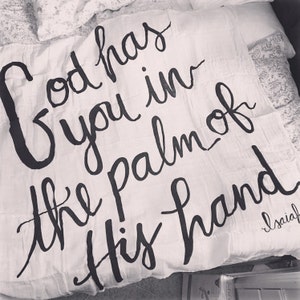 God has
you in
the palm of
His hand
Isaiah